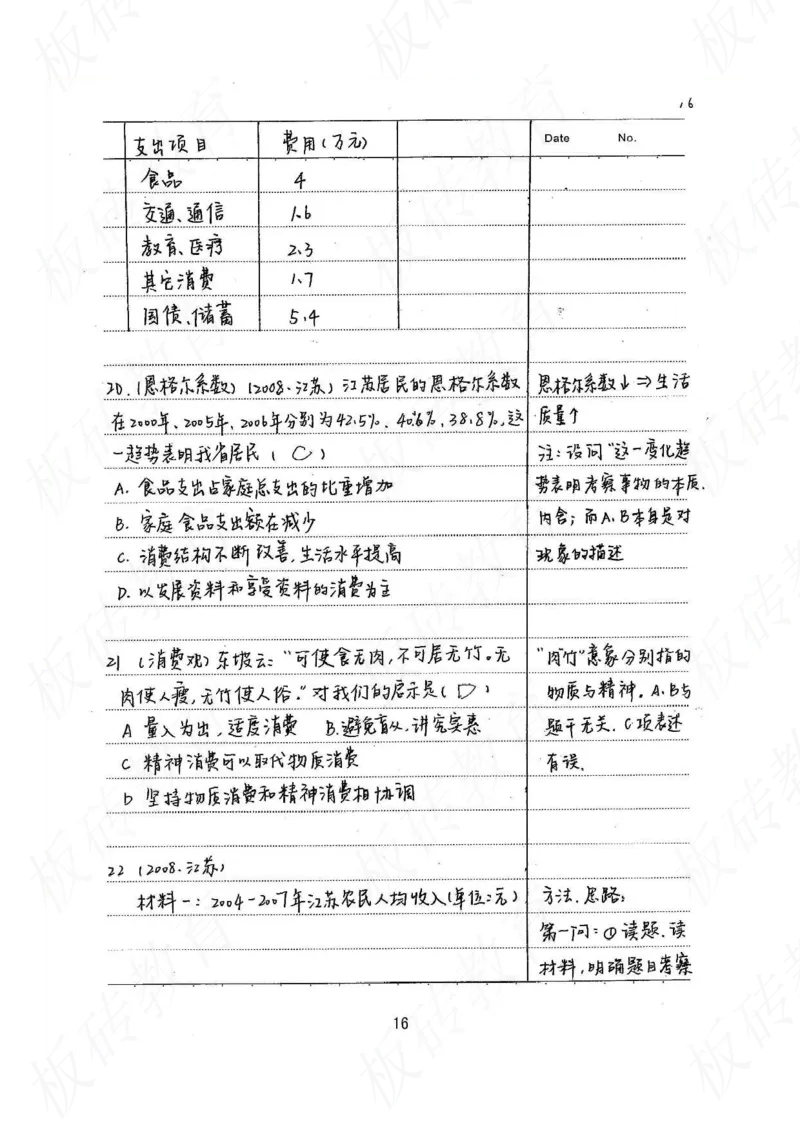 16
支出项目 费用(万元) Date No.
食品 4
交通、通信 1.6
教育、医疗 2.3
其它消费 1.7
国债、储蓄 5.4
20.(恩格尔系数)(2008·江苏)江苏居民的恩格尔系数
在2000年、2005年、2006年分别为42.5%、40.6%、38.8%,这
一趋势表明我省居民(C)
A. 食品支出占家庭总支出的比重增加
B. 家庭食品支出额在减少
C. 消费结构不断改善,生活水平提高
D. 以发展资料和享受资料的消费为主
恩格尔系数↓⇒生活
质量↑
注:设问“这一变化趋
势表明考察事物的本质、
内含;而A、B本身是对
现象的描述
21 (消费观)东坡云:“可使食无肉,不可居无竹。无
肉使人瘦,无竹使人俗。”对我们的启示是(D)
A 量入为出,适度消费 B.避免盲从,讲究实惠
C 精神消费可以取代物质消费
D 坚持物质消费和精神消费相协调
“肉竹”意象分别指的
物质与精神。A、B与
题干无关、C项表述
有误、
22 (2008·江苏)
材料一:2004-2007年江苏农民人均收入(单位:元)
方法、思路:
第一问:①读题、读
材料,明确题目考察
16
板砖教育
板砖教育
板砖教育
板砖教育
板砖教育
板砖教育